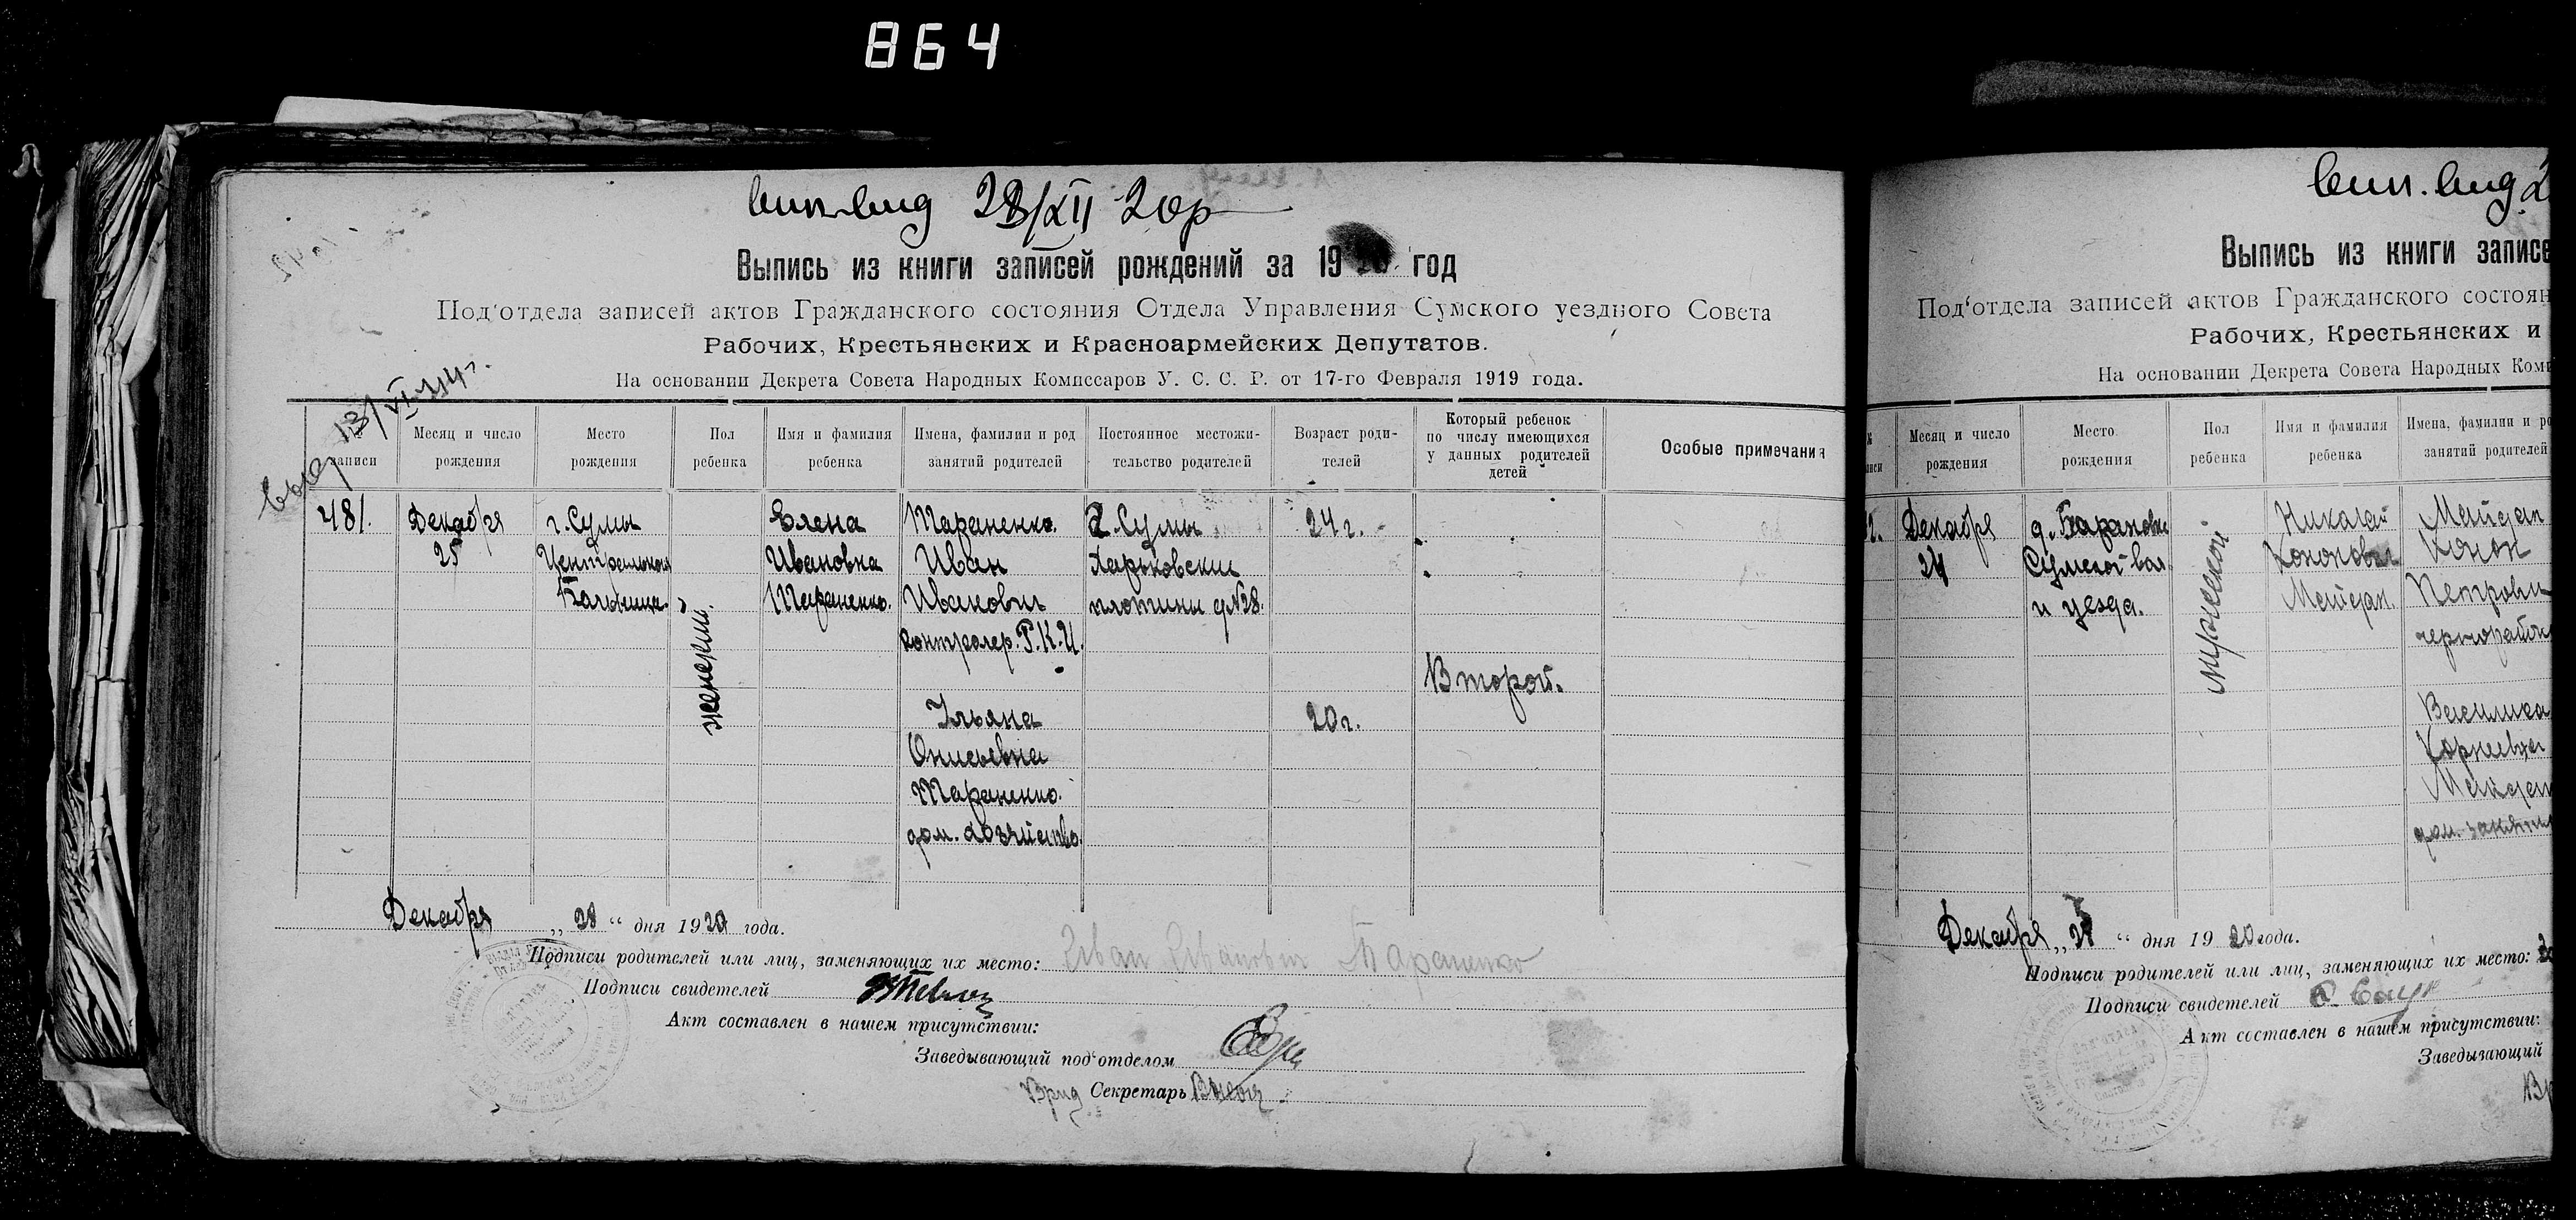 864
28/XII 20р
Выпись из книги записей рождений за 19 год
Под'отдела записей актов Гражданского состояния Отдела Управления Сумского уездного Совета
Рабочих, Крестьянских и Красноармейских Депутатов.
На основании Декрета Совета Народных Комиссаров У. С. С. Р. от 17-го Февраля 1919 года.
записи
Месяц и число рождения
Место рождения
Пол ребенка
Имя и фамилия ребенка
Имена, фамилии и род занятий родителей
Постоянное местожительство родителей
Возраст родителей
Который ребенок по числу имеющихся у данных родителей детей
Особые примечания
481.
Декабря
25
г. Сумы
Центральная
Больница
женский.
Елена
Ивановна
Тараненко.
Тараненко.
Иван
Иванович
контролер. Р.К.И.
Ульяна
Онисьевна
Тараненко.
дом. хозяйство.
г. Сумы
Харьковский
плотины д №28.
24 г.
20 г.
Второй.
Декабря „28“ дня 1920 года.
Подписи родителей или лиц, заменяющих их место: Иван Иванович Тараненко
Подписи свидетелей
Акт составлен в нашем присутствии:
Заведывающий под'отделом
Врид Секретарь
Выпись из книги записе
Под'отдела записей актов Гражданского состоян
Рабочих, Крестьянских и
На основании Декрета Совета Народных Коми
Месяц и число рождения
Место рождения
Пол ребенка
Имя и фамилия ребенка
Имена, фамилии и ро
занятий родителей
2.
Декабря
24
д. Барановка
Сумской вол.
и уезда.
мужеской
Николай
Кононович
Мейдан.
Мейдан
Конон
Петрович
Василиса
Корнеевна
Мейдан
дом. занятия
Декабря „ “ дня 1920 года.
Подписи родителей или лиц, заменяющих их место:
Подписи свидетелей
Акт составлен в нашем присутствии:
Заведывающий
Вр